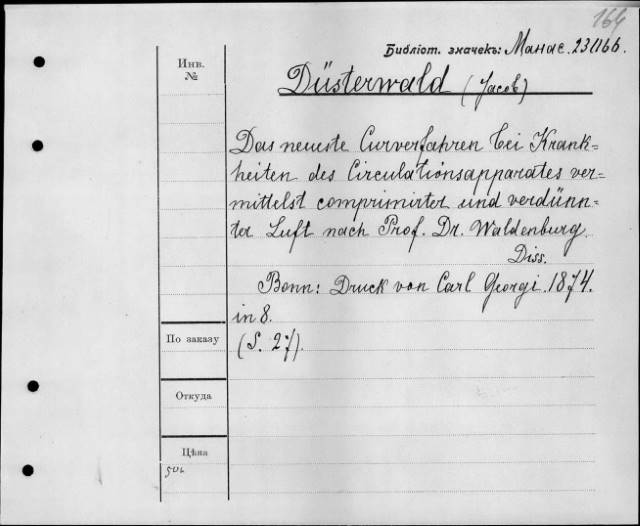 164
Библіот. значекъ: Манас. 23/166.
Инв.
№
Düsterwald (Jacob)
Das neueste Curverfahren bei Krank=
heiten des Circulationsapparates ver-
mittelst comprimirter und verdünn=
ter Luft nach Prof. Dr. Waldenburg.
Diss.
Bonn: Druck von Carl Georgi. 1874.
in 8.
По заказу
(S. 27).
Откуда
Цѣна